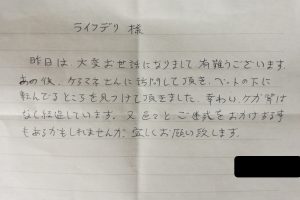 ライフデリ 様
昨日は、大変お世話になりまして有難うございます。
あの後、ケアマネさんに訪問して頂き、ベットの下に
転んでるところを見つけて頂きました。幸わい、ケガ等は
なく経過しています。又 色々と ご迷惑をおかけする事
もあるかもしれませんが、宜しくお願い致します。